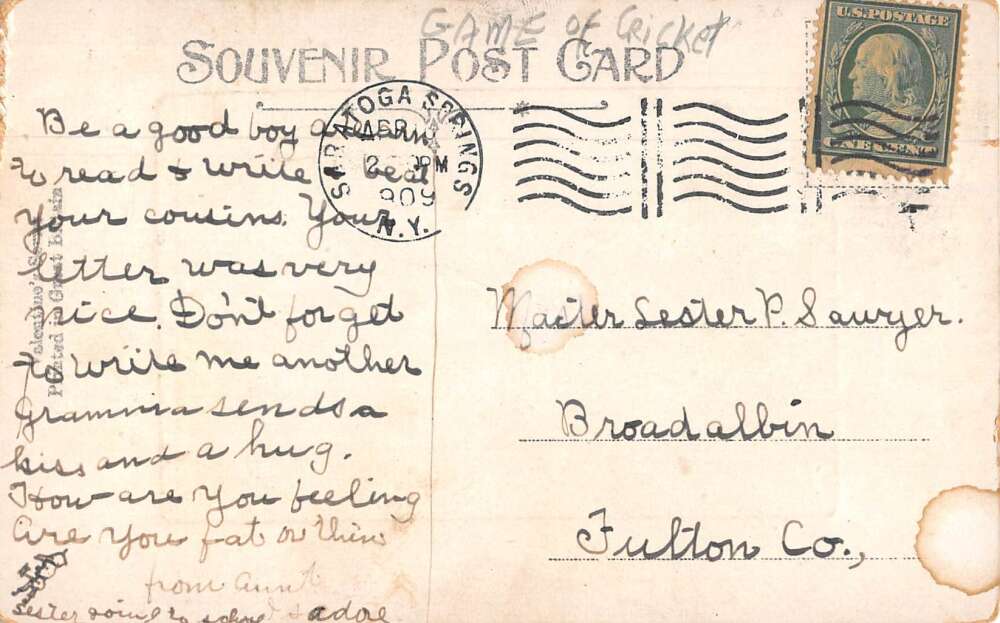 GAME OF Cricket
SOUVENIR POST CARD
U.S. POSTAGE
SARATOGA SPRINGS
APR
2 PM
909
N.Y.
Be a good boy and
to read & write beat
your cousins. Your
letter was very
nice. Don't forget
to write me another
Gramma sends a
kiss and a hug.
How are you feeling
Are you fat or thin
from Aunt
Lester going to
Printed in Great Britain
Master Lester P. Sawyer.
Broadalbin
Fulton Co.,